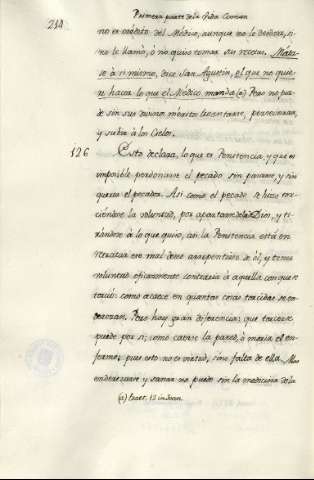 214 Primera parte de la Vida Comun
no es credito del Medico, aunque no le deva, si
no le llamó, ó no quiso tomar sus recetas. Mata-
se à si mismo, dice San Agustin, el que no quie-
re hacer lo que el Medico manda (a) Pero no pu-
do sin su divino merito levantarse, perseverar,
y subir à los Cielos.
126 Esto declara, lo que es Penitencia, y que es
imposible perdonarse el pecado sin pesarse, y sin
quererlo el pecador. Asi como el pecado se hizo
la voluntad, por apartarse de Dios, y ti-
randose à lo que quiso, asi la Penitencia está en
retratar ese mal dense arrepentido de él, y tener
voluntad eficazmente contraria à aquella con que se
torció: como acaece en quantas cosas torcidas se en-
derezan. Pero hay gran diferencia; que torcerse
puede por si, como caerse la pared, ò morir el en-
fermo; pues esto no es virtud, sino falta de ella. Mas
enderezarse y sanar no puede sin la medicina de la
(a) Tract. 12 in Joan.